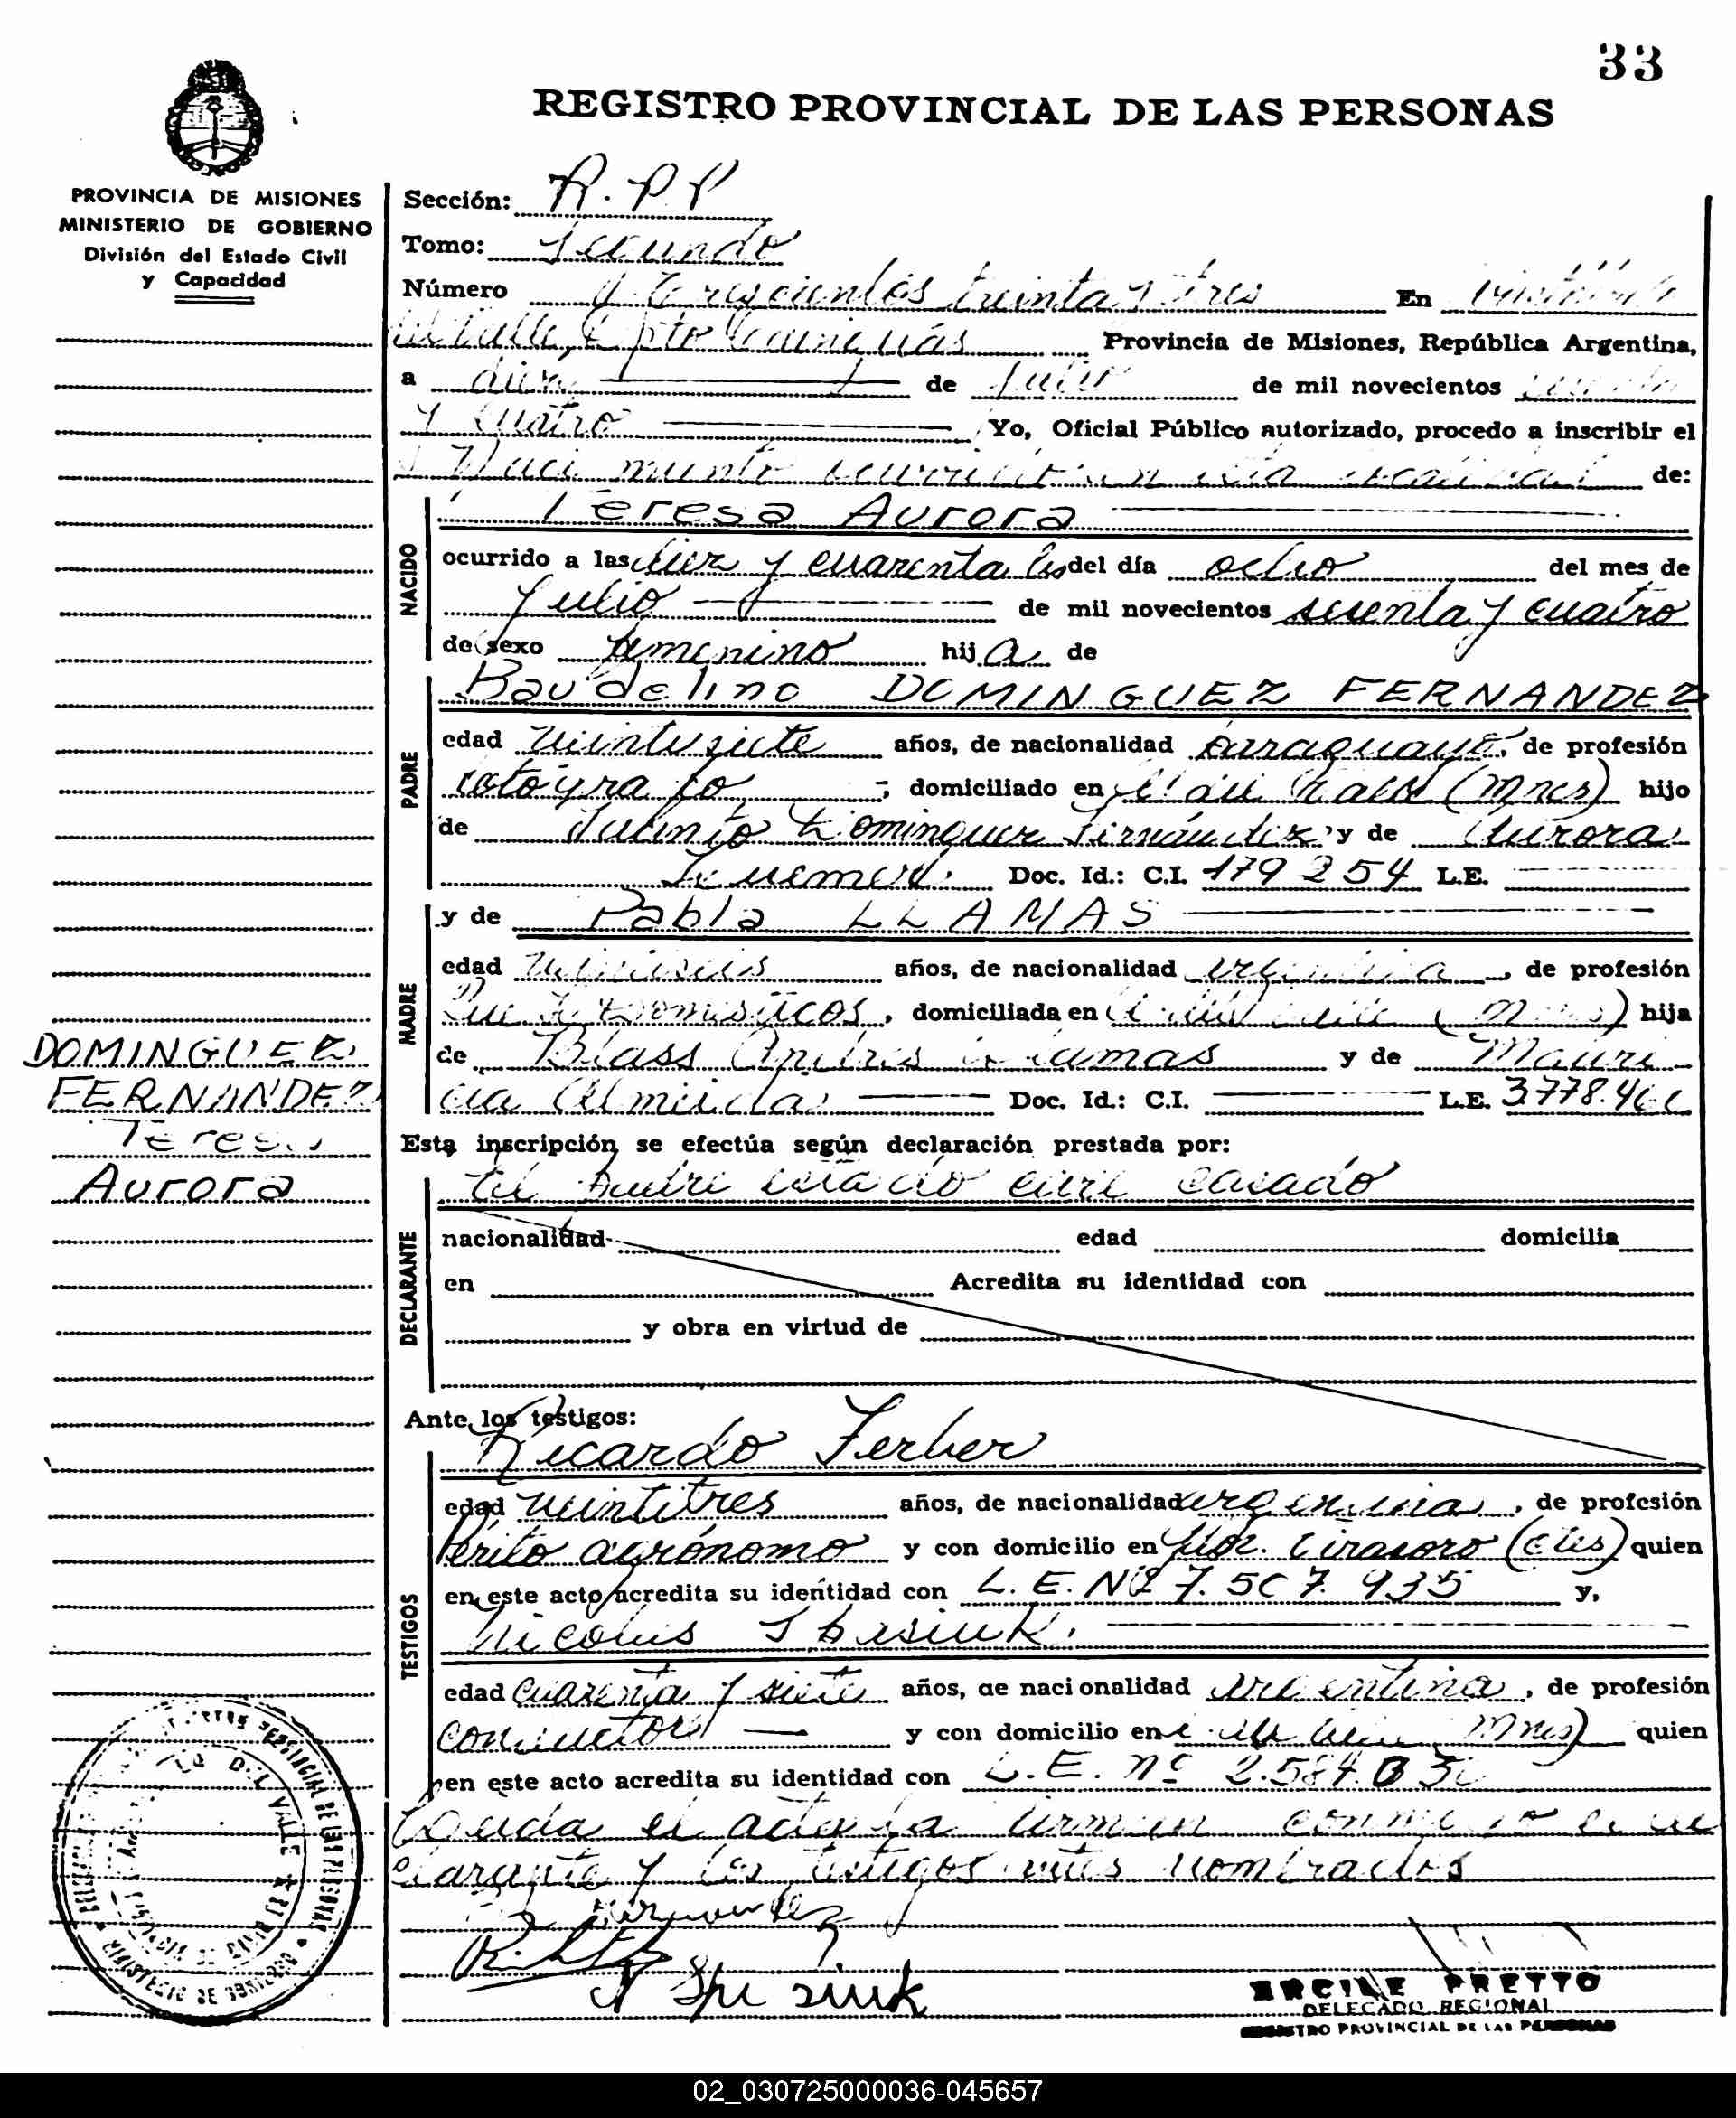 33
REGISTRO PROVINCIAL DE LAS PERSONAS
PROVINCIA DE MISIONES
MINISTERIO DE GOBIERNO
División del Estado Civil
y Capacidad
Sección: R.P.P
Tomo: Segundo
Número trescientos treinta y tres En
del Valle, Dpto Cainguás Provincia de Misiones, República Argentina,
a diez de julio de mil novecientos sesenta
y cuatro Yo, Oficial Público autorizado, procedo a inscribir el
Nacimiento ocurrido en esta localidad de:
NACIDO
Teresa Aurora
ocurrido a las diez y cuarenta hs del día ocho del mes de
Julio de mil novecientos sesenta y cuatro
de sexo femenino hija de
PADRE
Baudelino DOMINGUEZ FERNANDEZ
edad veintisiete años, de nacionalidad paraguaya, de profesión
fotógrafo; domiciliado en A. del Valle (Mnes) hijo
de Dominguez Fernández y de Aurora
Doc. Id.: C.I. 179254 L.E.
MADRE
y de Pabla LLAMAS
edad años, de nacionalidad argentina, de profesión
Que H Domésticos, domiciliada en A. del Valle (Mnes) hija
de Blass Andrés Llamas y de Mauri
cia Almeida Doc. Id.: C.I. L.E. 3.778.
DOMINGUEZ
FERNANDEZ
Teresa
Aurora
Esta inscripción se efectúa según declaración prestada por:
DECLARANTE
El Padre estado civil casado
nacionalidad edad domicilia
en Acredita su identidad con
y obra en virtud de
Ante los testigos:
TESTIGOS
Ricardo Ferber
edad veintitres años, de nacionalidad argentina, de profesión
Périto agrónomo y con domicilio en Gdor. Virasoro (Ctes) quien
en este acto acredita su identidad con L.E. Nº 7.507.935 y,
Nicolus
edad cuarenta y siete años, de nacionalidad argentina, de profesión
conductor y con domicilio en A. del Valle (Mnes) quien
en este acto acredita su identidad con L.E. nº 2.584.
Leída el acta la firman conmigo el de
clarante y los testigos antes nombrados
Fernandez
ERCILE PRETTO
DELEGADO REGIONAL
REGISTRO PROVINCIAL DE LAS PERSONAS
02_030725000036-045657